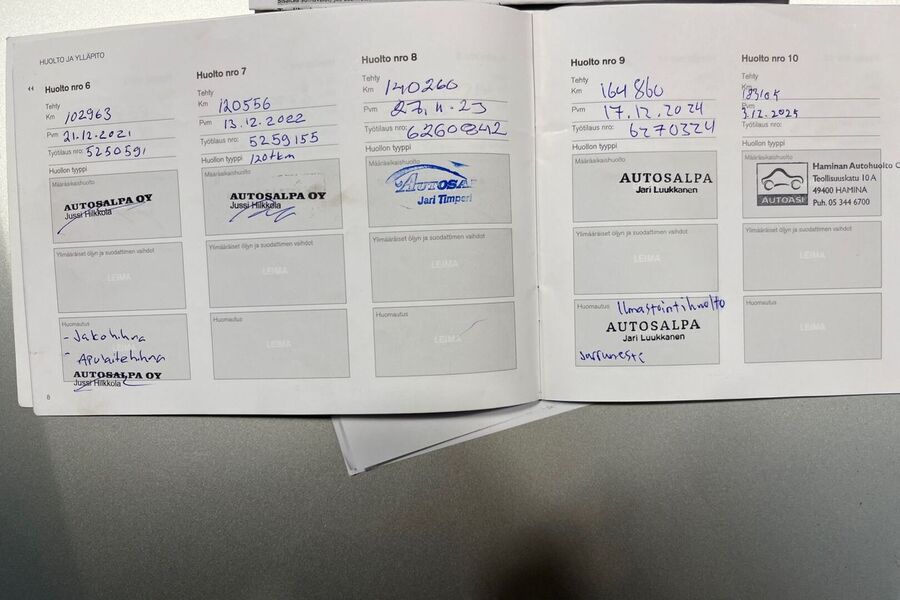 HUOLTO JA YLLÄPITO
Huolto nro 6
Tehty
Km 102963
Pvm 21.12.2021
Työtilaus nro: 5250591
Huollon tyyppi
Määräaikaishuolto
AUTOSALPA OY
Jussi Hilkkola
Ylimääräiset öljyn ja suodattimen vaihdot
LEIMA
Huomautus
- Jakohihna
- Apulaitehihna
AUTOSALPA OY
Jussi Hilkkola
8
Huolto nro 7
Tehty
Km 120556
Pvm 13.12.2022
Työtilaus nro: 5259155
Huollon tyyppi 120tkm
Määräaikaishuolto
AUTOSALPA OY
Jussi Hilkkola
Ylimääräiset öljyn ja suodattimen vaihdot
LEIMA
Huomautus
LEIMA
Huolto nro 8
Tehty
Km 140260
Pvm 27.11.23
Työtilaus nro: 6260842
Huollon tyyppi
Määräaikaishuolto
AUTOSA
Jari Timperi
Ylimääräiset öljyn ja suodattimen vaihdot
LEIMA
Huomautus
LEIMA
Huolto nro 9
Tehty
Km 164860
Pvm 17.12.2024
Työtilaus nro: 6270324
Huollon tyyppi
Määräaikaishuolto
AUTOSALPA
Jari Luukkanen
Ylimääräiset öljyn ja suodattimen vaihdot
LEIMA
Huomautus Ilmastointihuolto
AUTOSALPA
Jari Luukkanen
Jarruneste
Huolto nro 10
Tehty
Km
Pvm 3.12.2025
Työtilaus nro:
Huollon tyyppi
Määräaikaishuolto
AUTOASI
Haminan Autohuolto
Teollisuuskatu 10 A
49400 HAMINA
Puh. 05 344 6700
Ylimääräiset öljyn ja suodattimen vaihdot
LEIMA
Huomautus
LEIMA